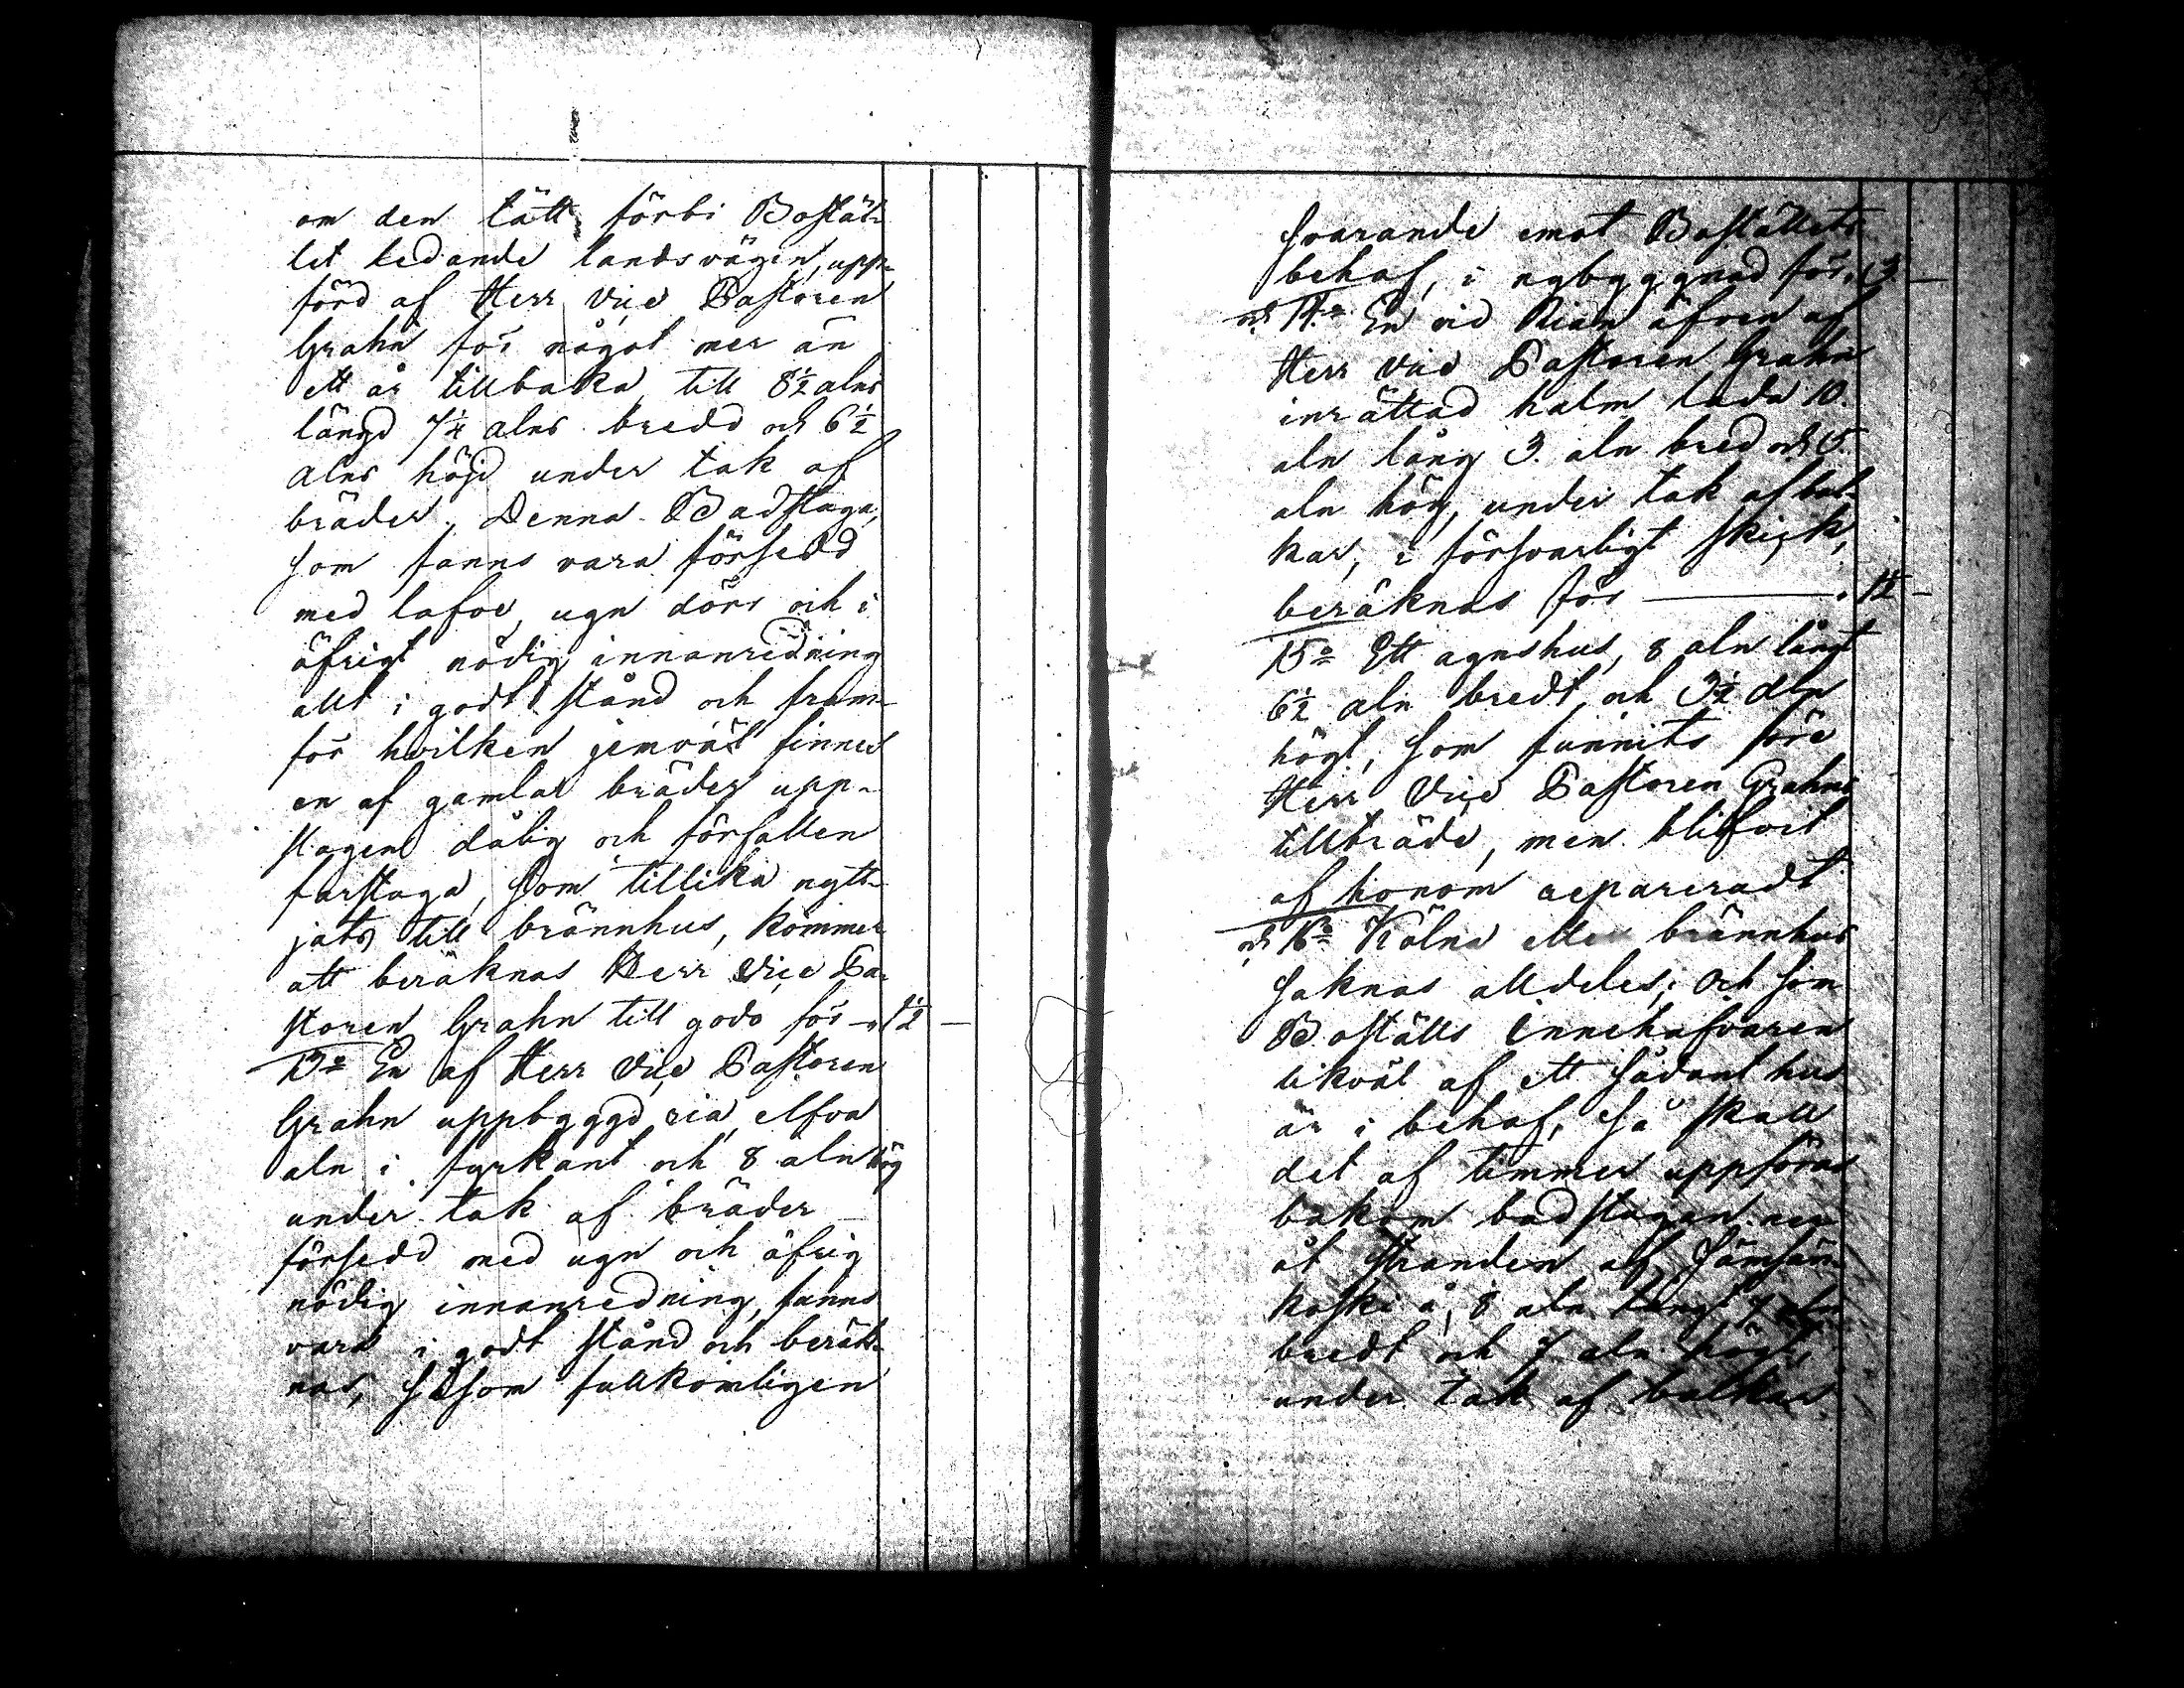 om den tätt förbi Bostäl-
let ledande landsvägen, upp-
förd af Herr Vice Pastoren
Grahn för något mer än
ett år tillbaka till 8½ alns
längd 7¼ alns bredd och 6½
alns höjd under tak af
bräder. Denna Badstuga,
som fanns vara försedd
med lafve, ugn dörr och i
öfrigt nödig innanredning
allt i godt stånd och fram-
för hvilken jemväl finnes
en af gamla bräder upp-
slagen dålig och förfallen
farstuga, som tillika nytt-
jats till brännhus, kommer
att beräknas Herr Vice Pa-
storen Grahn till godo för — „ 1½ —
13:o En af Herr Vice Pastoren
Grahn uppbyggd ria elfva
aln i fyrkant och 8 aln hög
under tak af bräder
försedd med ugn och öfrig
nödig innanredning, fanns
vara i godt stånd och beräk-
nas, såsom fullkomligen
svarande emot Boställets
behof, i nybyggnad för „ 3 —
och 14:o En vid Rian äfven af
Herr Vice Pastoren Grahn
inrättad halm lada 10.
aln lång 3. aln bred och 5.
aln hög, under tak af bal-
kar, i försvarligt skick,
beräknas för —
15:o Ett agnshus, 8 aln långt
6½ aln bredt och 3½ aln
högt, som funnits före
Herr Vice Pastoren Grahns
tillträde, men blifvit
af honom repareradt
och 16:o Kölna eller brännhus
saknas alldeles; Och som
Boställs Innehafvaren
likväl af ett sådant hus
är i behof, så skall
det af timmer uppföras
bakom badstugan ner
åt stranden af Jämsän-
koski å, 8 aln långt 7 aln
bredt och 7 aln högt,
under tak af balkar